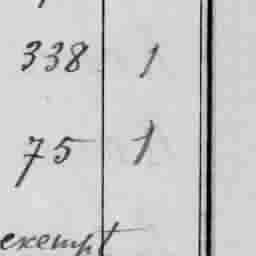 338 1
75 1
exempt